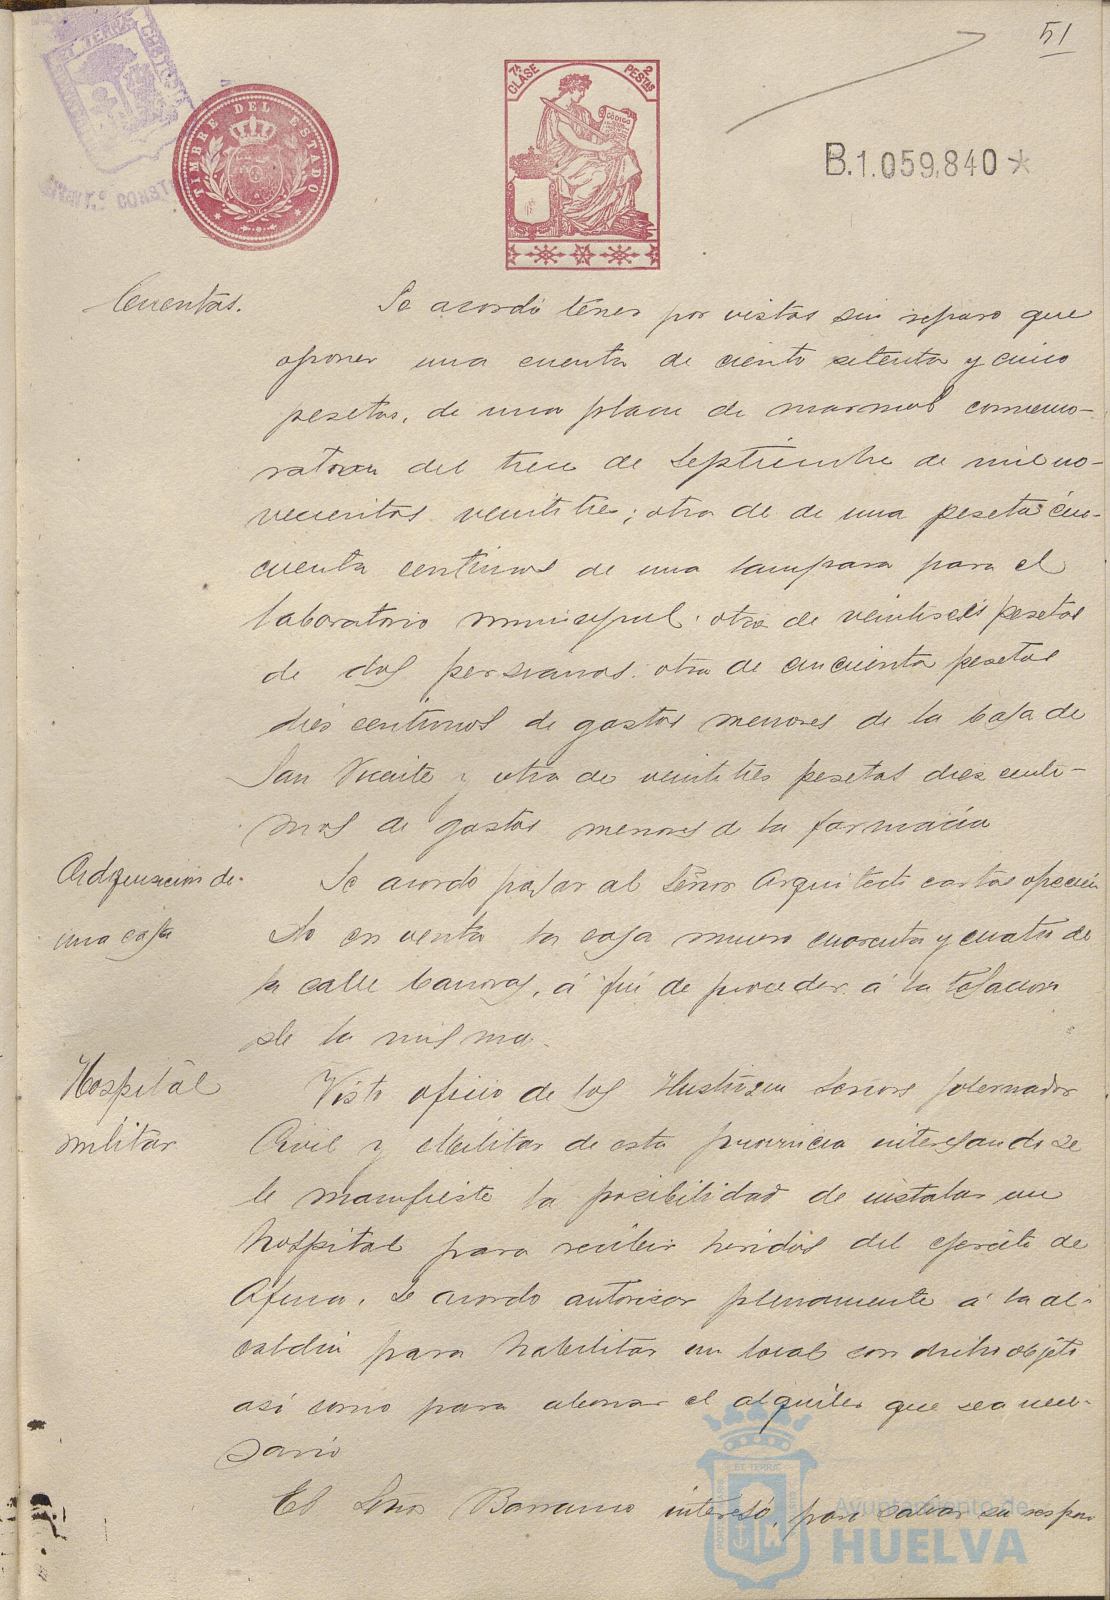 51
TIMBRE DEL ESTADO
7ª CLASE
2 PESTAS
CODIGO
B.1.059,840 *
Cuentas.
Se acordó tener por vistas sin reparo que
oponer una cuenta de ciento setenta y cinco
pesetas, de una placa de marmol conmemo-
ratoria del trece de Septiembre de mil no-
vecientos veintitres; otra de de una peseta cin-
cuenta centimos de una lampara para el
laboratorio municipal. otra de veintiseis pesetas
de dos persianas. otra de cincuenta pesetas
dies centimos de gastos menores de la Casa de
San Vicente y otra de veintitres pesetas dies centi-
mos de gastos menores de la farmacia
Adquisicion de
una casa
Se acordo pasar al Señor Arquitecto cartas ofrecien
do en venta la casa numero cuarenta y cuatro de
la calle Canovas, á fin de proceder á la tasacion
de la misma.
Hospital
militar
Visto oficio de los Ilustrisimos Señores Gobernador
Civil y Militar de esta provincia interesando se
le manifieste la posibilidad de instalar un
hospital para recibir heridos del ejercito de
Africa, se acordo autorizar plenamente á la al-
caldia para habilitar un local con dicho objeto
así como para abonar el alquiler que sea nece-
sario
El Señor Barranco interesó, para salvar su respon
Ayuntamiento de
HUELVA